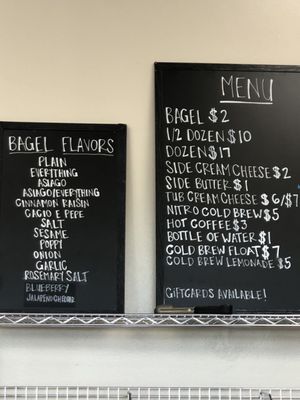 BAGEL FLAVORS
PLAIN
EVERYTHING
ASIAGO
ASIAGO/EVERYTHING
CINNAMON RAISIN
CACIO E PEPE
SALT
SESAME
POPPY
ONION
GARLIC
ROSEMARY SALT
BLUEBERRY
JALAPENO CHEDDAR
MENU
BAGEL $2
1/2 DOZEN $10
DOZEN $17
SIDE CREAM CHEESE $2
SIDE BUTTER $1
TUB CREAM CHEESE $6/$7
NITRO COLD BREW $5
HOT COFFEE $3
BOTTLE OF WATER $1
COLD BREW FLOAT $7
COLD BREW LEMONADE $5
GIFTCARDS AVAILABLE!